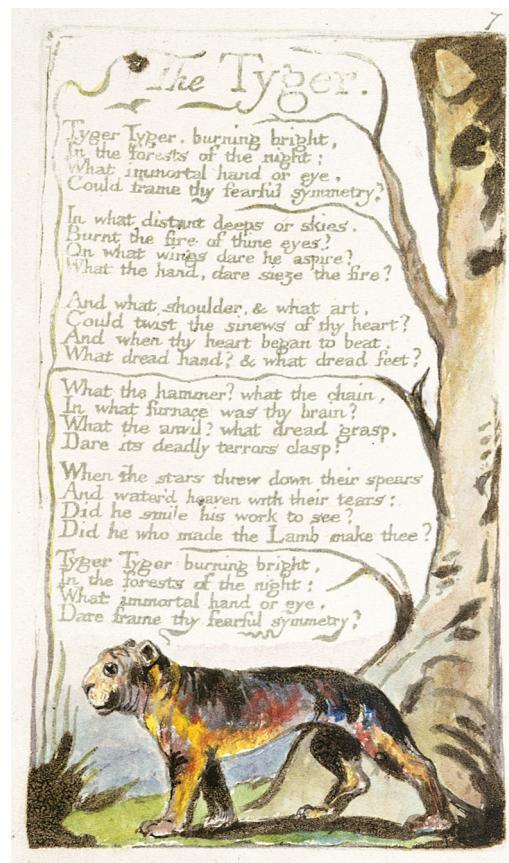 7
The Tyger.
Tyger Tyger. burning bright,
In the forests of the night;
What immortal hand or eye.
Could frame thy fearful symmetry?
In what distant deeps or skies.
Burnt the fire of thine eyes?
On what wings dare he aspire?
What the hand, dare sieze the fire?
And what shoulder, & what art,
Could twist the sinews of thy heart?
And when thy heart began to beat.
What dread hand? & what dread feet?
What the hammer? what the chain,
In what furnace was thy brain?
What the anvil? what dread grasp.
Dare its deadly terrors clasp!
When the stars threw down their spears
And water'd heaven with their tears:
Did he smile his work to see?
Did he who made the Lamb make thee?
Tyger Tyger burning bright,
In the forests of the night:
What immortal hand or eye.
Dare frame thy fearful symmetry?